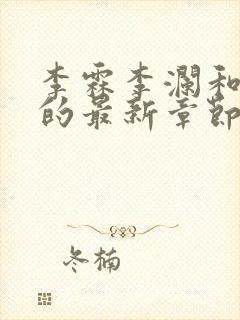 李霖李澜和
的最新章節
冬楠